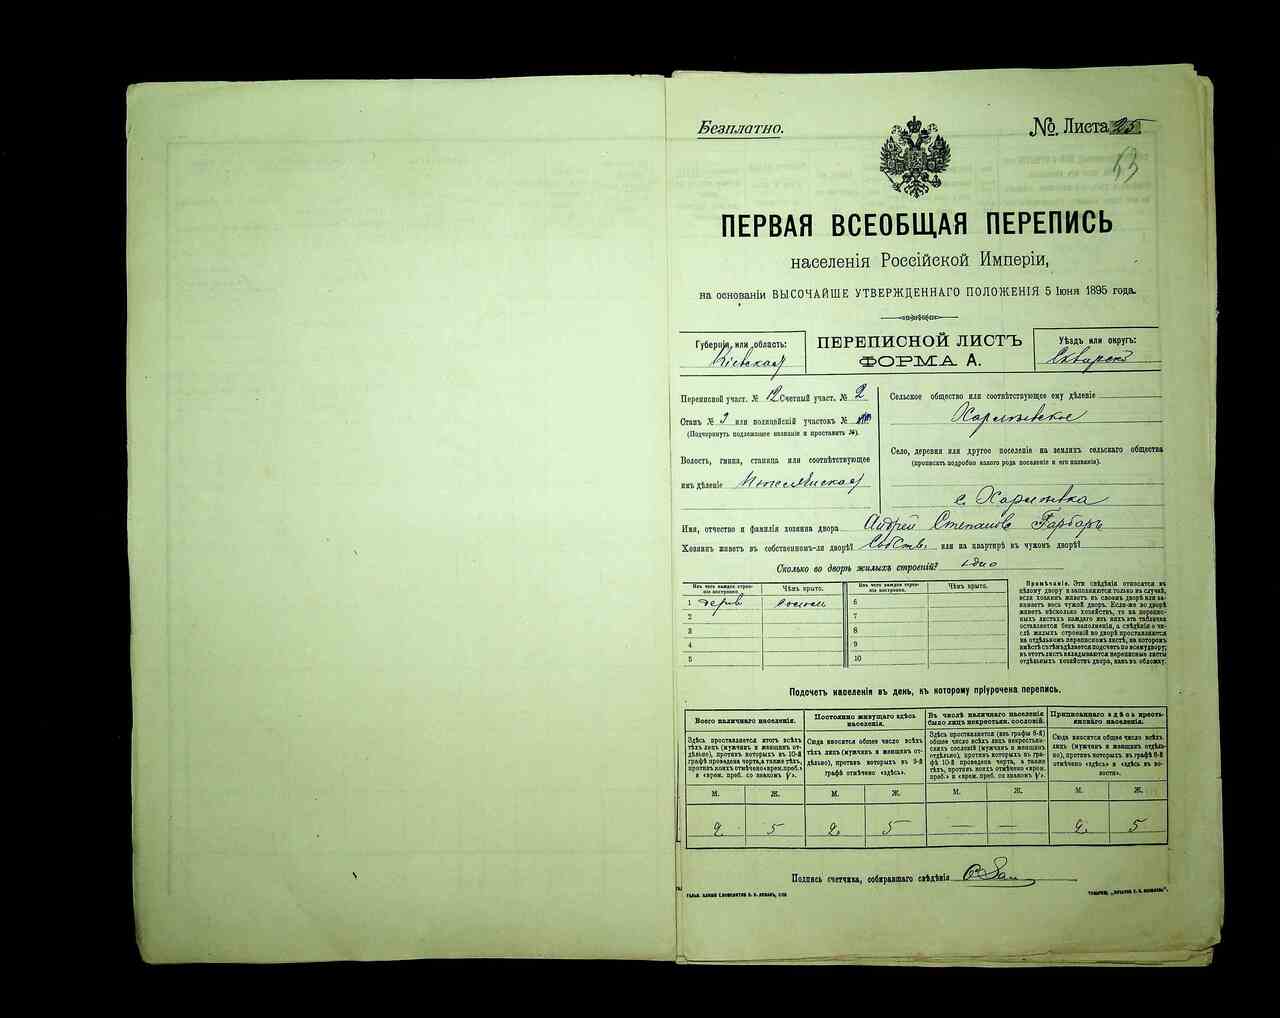 Безплатно.
№. Листа 25
53
ПЕРВАЯ ВСЕОБЩАЯ ПЕРЕПИСЬ
населенія Россійской Имперіи,
на основаніи ВЫСОЧАЙШЕ УТВЕРЖДЕННАГО ПОЛОЖЕНІЯ 5 Іюня 1895 года.
Губернія, или область:
Кіевская
ПЕРЕПИСНОЙ ЛИСТЪ
ФОРМА А.
Уѣздъ или округъ:
Сквирскій
Переписной участ. № 12 Счетный участ. № 2
Станъ № 3 или полицейскій участокъ №
(Подчеркнуть подлежащее названіе и проставить №).
Волость, гмина, станица или соотвѣтствующее
имъ дѣленіе
Сельское общество или соотвѣтствующее ему дѣленіе
Село, деревня или другое поселеніе на земляхъ сельскаго общества
(прописать подробно какого рода поселеніе и его названіе).
с.
Имя, отчество и фамилія хозяина двора Андрей Степановъ Гарбаръ
Хозяинъ живетъ въ собственномъ-ли дворѣ? Собств. или на квартирѣ въ чужомъ дворѣ?
Сколько во дворѣ жилыхъ строеній? одно
Изъ чего каждое строеніе построено.
Чѣмъ крыто.
Изъ чего каждое строеніе построено.
Чѣмъ крыто.
1 дерев соломой 6
2 7
3 8
4 9
5 10
Примѣчаніе. Эти свѣдѣнія относятся къ
цѣлому двору и заполняются только въ случаѣ,
если хозяинъ живетъ въ своемъ дворѣ или занимаетъ
весь чужой дворъ. Если-же во дворѣ
живетъ нѣсколько хозяйствъ, то на переписныхъ
листахъ каждаго изъ нихъ эта табличка
оставляется безъ заполненія, а свѣдѣнія о числѣ
жилыхъ строеній во дворѣ проставляются
на отдѣльномъ переписномъ листѣ, на которомъ
вмѣстѣ съ тѣмъ дѣлается подсчетъ по всему двору;
въ этотъ листъ вкладываются переписные листы
отдѣльныхъ хозяйствъ двора, какъ въ обложку.
Подсчетъ населенія въ день, къ которому пріурочена перепись.
Всего наличнаго населенія.
Постоянно живущаго здѣсь населенія.
Въ числѣ наличнаго населенія было лицъ некрестьян. сословій.
Приписаннаго здѣсь крестьянскаго населенія.
Здѣсь проставляется итогъ всѣхъ тѣхъ лицъ (мужчинъ и женщинъ отдѣльно), противъ которыхъ въ 10-й графѣ проведена черта, а также тѣхъ, противъ коихъ отмѣчено «врем. преб.» и «врем. преб. со знакомъ V».
Сюда вносится общее число всѣхъ лицъ (мужчинъ и женщинъ отдѣльно), противъ которыхъ въ 9-й графѣ отмѣчено «здѣсь».
Здѣсь проставляется (изъ графы 6-й) общее число всѣхъ лицъ некрестьянскихъ сословій (мужчинъ и женщинъ отдѣльно), противъ которыхъ въ графѣ 10-й проведена черта, а также тѣхъ, противъ коихъ отмѣчено «врем. преб.» и «врем. преб. со знакомъ V».
Сюда вносится общее число всѣхъ лицъ (мужчинъ и женщинъ отдѣльно), противъ которыхъ въ графѣ 8-й отмѣчено «здѣсь» и «здѣсь въ волости».
М. Ж. М. Ж. М. Ж. М. Ж.
2. 5 2. 5 — — 2. 5
Подпись счетчика, собиравшаго свѣдѣнія